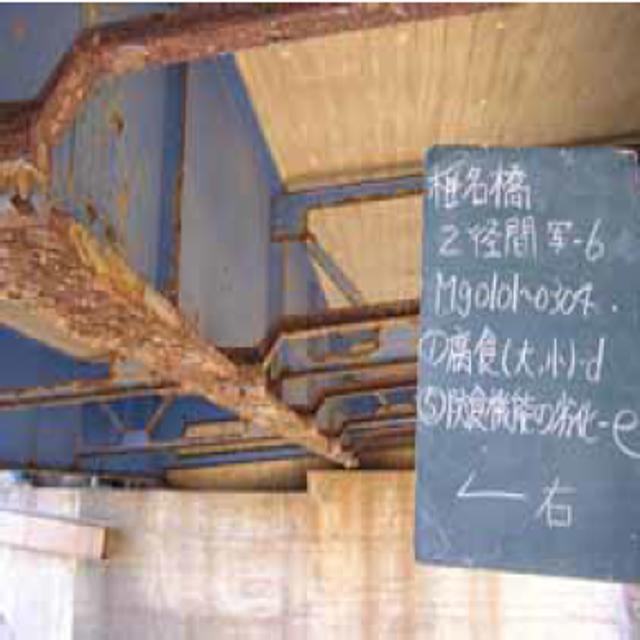 椎名橋
2径間 写-6
Mg0101~0304.
①腐食(大,小)-d
⑤防食機能の劣化-e
← 右